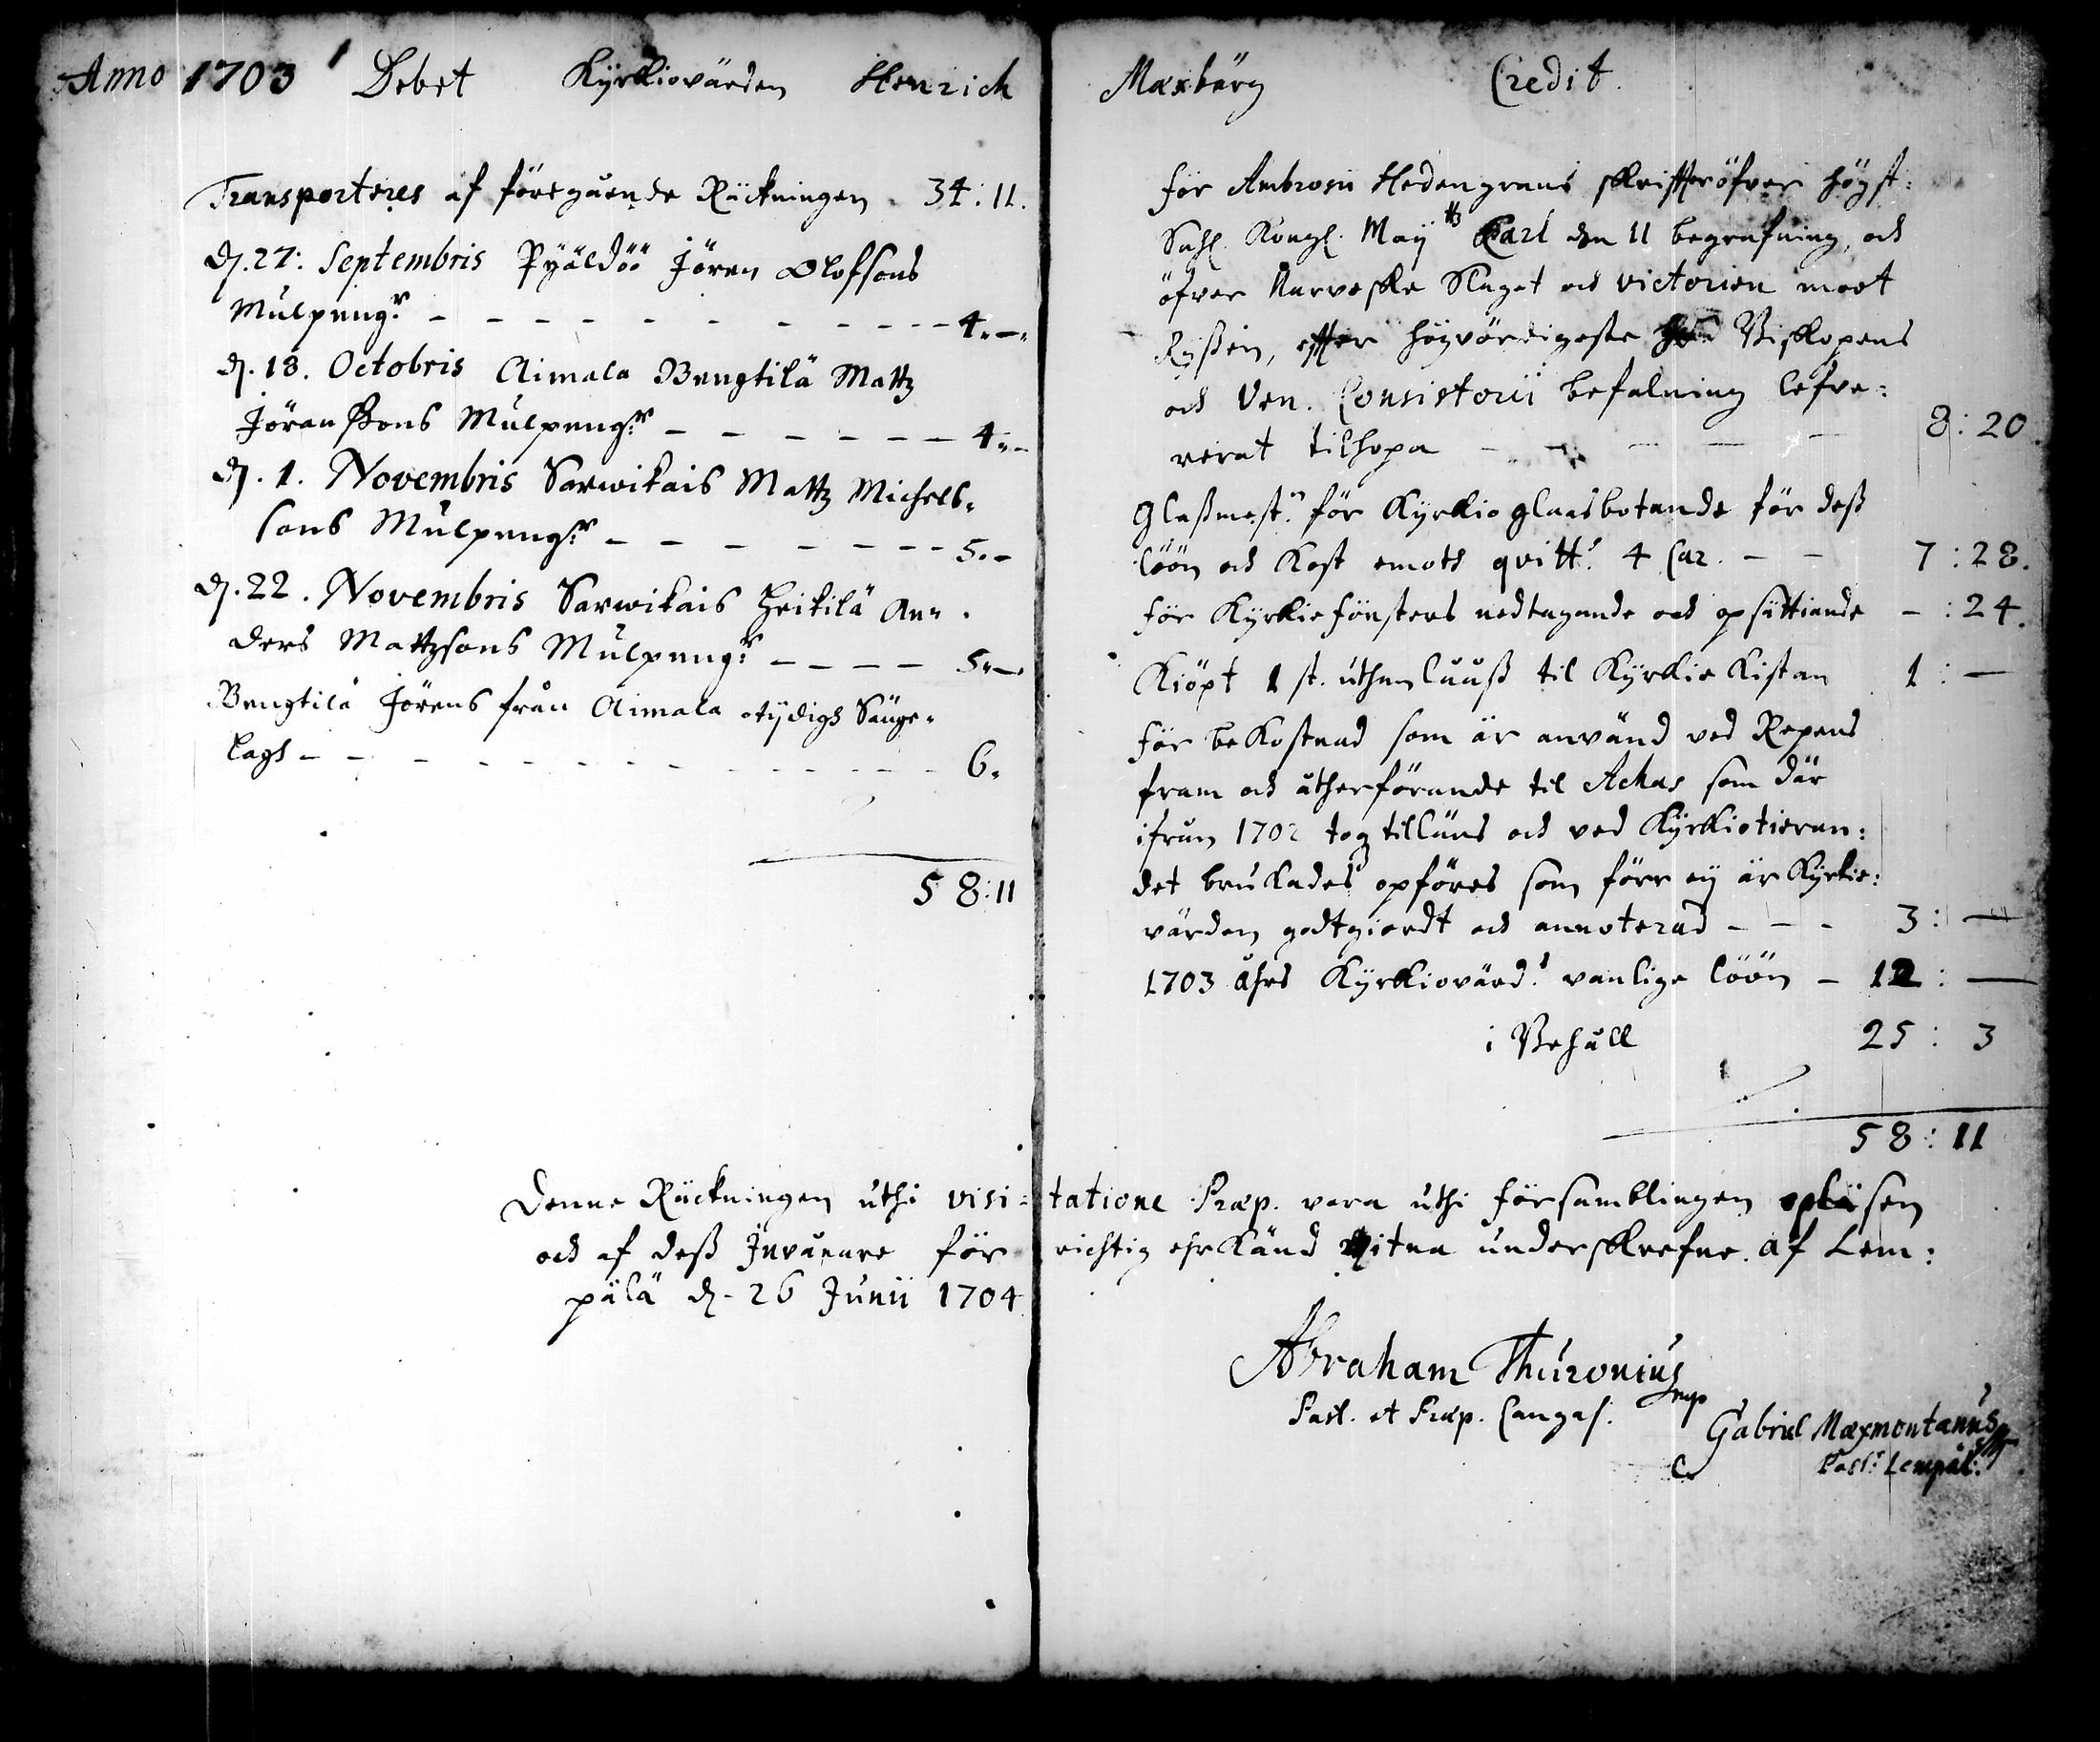 Anno 1703 Debet Kyrkiovärden Henrich
Transporteres af föregående Räckningen 34:11.
d. 27: Septembris Pyäldöö Jören Olofsons
Mulpeng:r - - - - 4.-.
d. 18. Octobris Aimala Bengtilä Mattz
Jöranssons Mulpeng:r - - - - 4.-
d. 1. Novembris Sarwikais Mattz Michels-
sons Mulpeng:r - - - - 5.-
d. 22. Novembris Sarwikais Heikilä An-
ders Mattzsons Mulpeng:r - - - - 5.-.
Bengtilä Jörens från Aimala otijdigh Sänge-
lagh - - - - 6.
58:11
Maxbärg Credit.
för Ambrosii Hedengrans skriffter öfver högst:
Sahl. Kongl. Maij:tz Carl den 11 begrafning, och
öfver Narveske Slaget och victorien moot
Ryssen, effter högvördigeste Biskopens
och Ven. Consistorii befalning lefve-
rerat tilhopa - - - - 8:20.
Glaßmest:n för Kyrkio glaasbotande för deß
löön och Kost emoth qvitt: 4 Car. - - 7:28.
för Kyrkiefönsters nedtagande och opsättiande -:24.
Kiöpt 1 st. uthanlååß til Kyrkie Kistan 1:-
för beKostnad som är använd ved Repens
fram och åtherförande til Achas som där
ifrån 1702 tog tillåns och ved Kyrkiotieran:
det bruKades opföres som förr ey är Kyrkie:
värden godtgiordt och annoterad - - - 3:-
1703 åhrs Kyrkiovärd:s vanlige löön - 12:-
i Behåll 25:3
58:11
Denne Räckningen uthi visi-tatione Præp. vara uthi församblingen opläsen
och af deß Invånare för richtig ehrkänd vitna underskrefne. af Lem:
pälä d. 26 Junii 1704
Abraham Thuronius
mp
Past. et Præp. Cangas.
Gabriel Maxmontanus
Past: Lempäl: